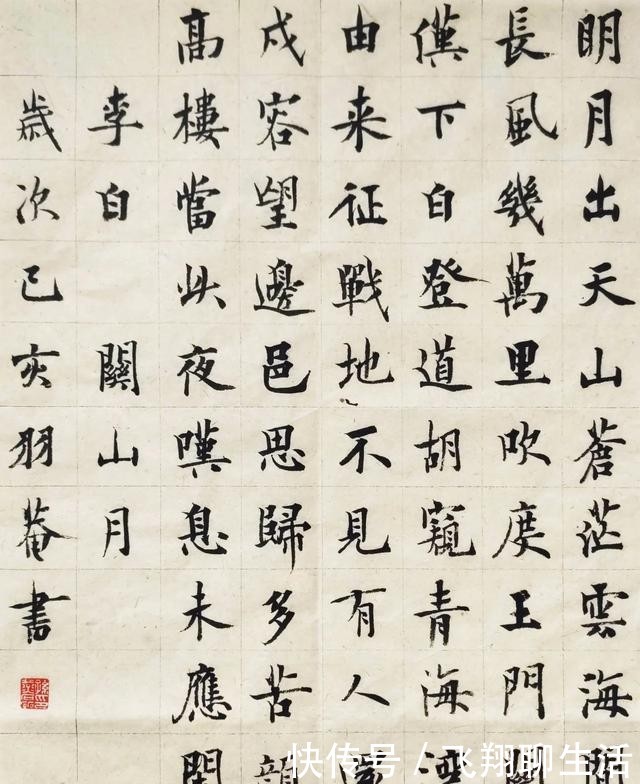 明月出天山蒼茫雲海
長風幾萬里吹度玉門關
漢下白登道胡窺青海
由来征戰地不見有人還
戍客望邊邑思歸多苦顏
高樓當此夜嘆息未應
李白 關山月
歲次己亥羽菴書
快传号/飞翔聊生活